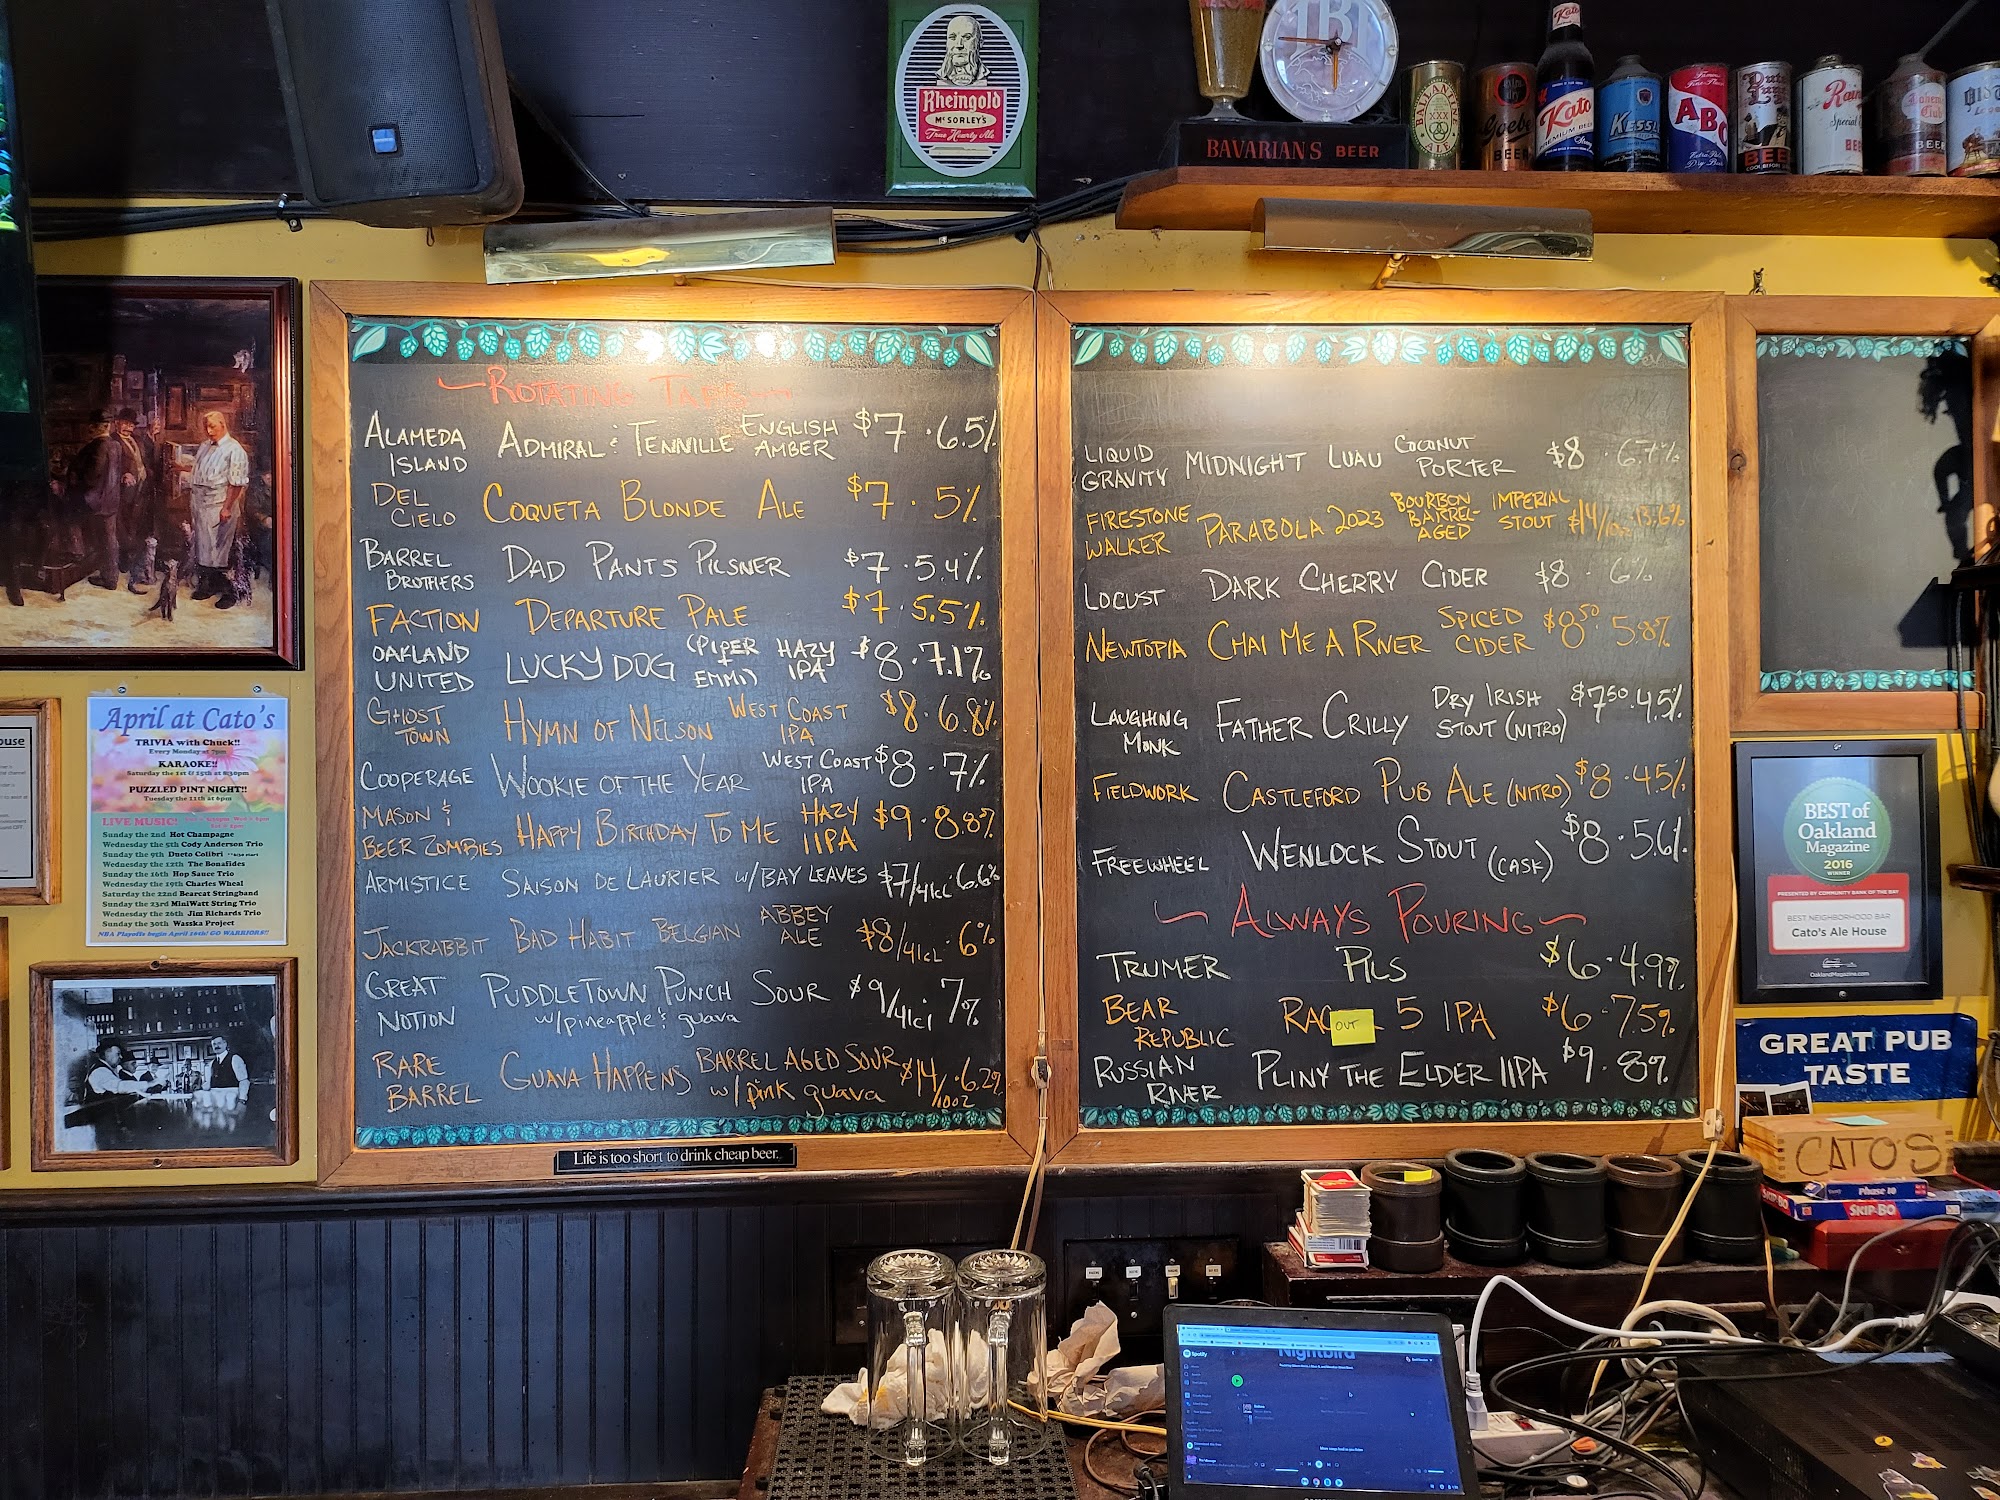 Rheingold
McSORLEY'S
True Hearty Ale
BAVARIAN'S BEER
BALLANTINE
XXX
ALE
BEER
Kato
Kato
BEER
ABC
BEER
BEER
BEER
~ROTATING TAPS~
ALAMEDA ISLAND ADMIRAL & TENNILLE ENGLISH AMBER $7 · 6.5%
DEL CIELO COQUETA BLONDE ALE $7 · 5%
BARREL BROTHERS DAD PANTS PILSNER $7 · 5.4%
FACTION DEPARTURE PALE $7 · 5.5%
OAKLAND UNITED LUCKY DOG (PIPER + EMMI) HAZY IPA $8 · 7.1%
GHOST TOWN HYMN OF NELSON WEST COAST IPA $8 · 6.8%
COOPERAGE WOOKIE OF THE YEAR WEST COAST IPA $8 · 7%
MASON & BEER ZOMBIES HAPPY BIRTHDAY TO ME HAZY IIPA $9 · 8.8%
ARMISTICE SAISON DE LAURIER w/BAY LEAVES $7/41cl · 6.6%
JACKRABBIT BAD HABIT BELGIAN ABBEY ALE $8/41cl · 6%
GREAT NOTION PUDDLETOWN PUNCH SOUR $9/41cl 7%
w/pineapple & guava
RARE BARREL GUAVA HAPPENS BARREL AGED SOUR w/ pink guava $14/10oz · 6.2%
Life is too short to drink cheap beer.
LIQUID GRAVITY MIDNIGHT LUAU COCONUT PORTER $8 · 6.7%
FIRESTONE WALKER PARABOLA 2023 BOURBON BARREL-AGED IMPERIAL STOUT $14/10oz · 13.6%
LOCUST DARK CHERRY CIDER $8 · 6%
NEWTOPIA CHAI ME A RIVER SPICED CIDER $8.50 5.8%
LAUGHING MONK FATHER CRILLY DRY IRISH STOUT (NITRO) $7.50 · 4.5%
FIELDWORK CASTLEFORD PUB ALE (NITRO) $8 · 4.5%
FREEWHEEL WENLOCK STOUT (CASK) $8 · 5.6%
~ALWAYS POURING~
TRUMER PILS $6 · 4.9%
BEAR REPUBLIC RAC 5 IPA $6 · 7.5%
OUT
RUSSIAN RIVER PLINY THE ELDER IIPA $9 · 8%
April at Cato's
TRIVIA with Chuck!!
Every Monday at 7pm
KARAOKE!!
Saturday the 1st & 15th at 8:30pm
PUZZLED PINT NIGHT!!
Tuesday the 11th at 6pm
LIVE MUSIC!
Sunday the 2nd Hot Champagne
Wednesday the 5th Cody Anderson Trio
Sunday the 9th Dueto Colibri
Wednesday the 12th The Bonafides
Sunday the 16th Hop Sauce Trio
Wednesday the 19th Charles Wheal
Saturday the 22nd Bearcat Stringband
Sunday the 23rd MiniWatt String Trio
Wednesday the 26th Jim Richards Trio
Sunday the 30th Wasska Project
NBA Playoffs begin April 16th! GO WARRIORS!!
BEST of
Oakland
Magazine
2016
WINNER
PRESENTED BY COMMUNITY BANK OF THE BAY
BEST NEIGHBORHOOD BAR
Cato's Ale House
OaklandMagazine.com
GREAT PUB
TASTE
CATO'S
Phase 10
SKIP-BO
SKIP-BO
Spotify
Nightbird